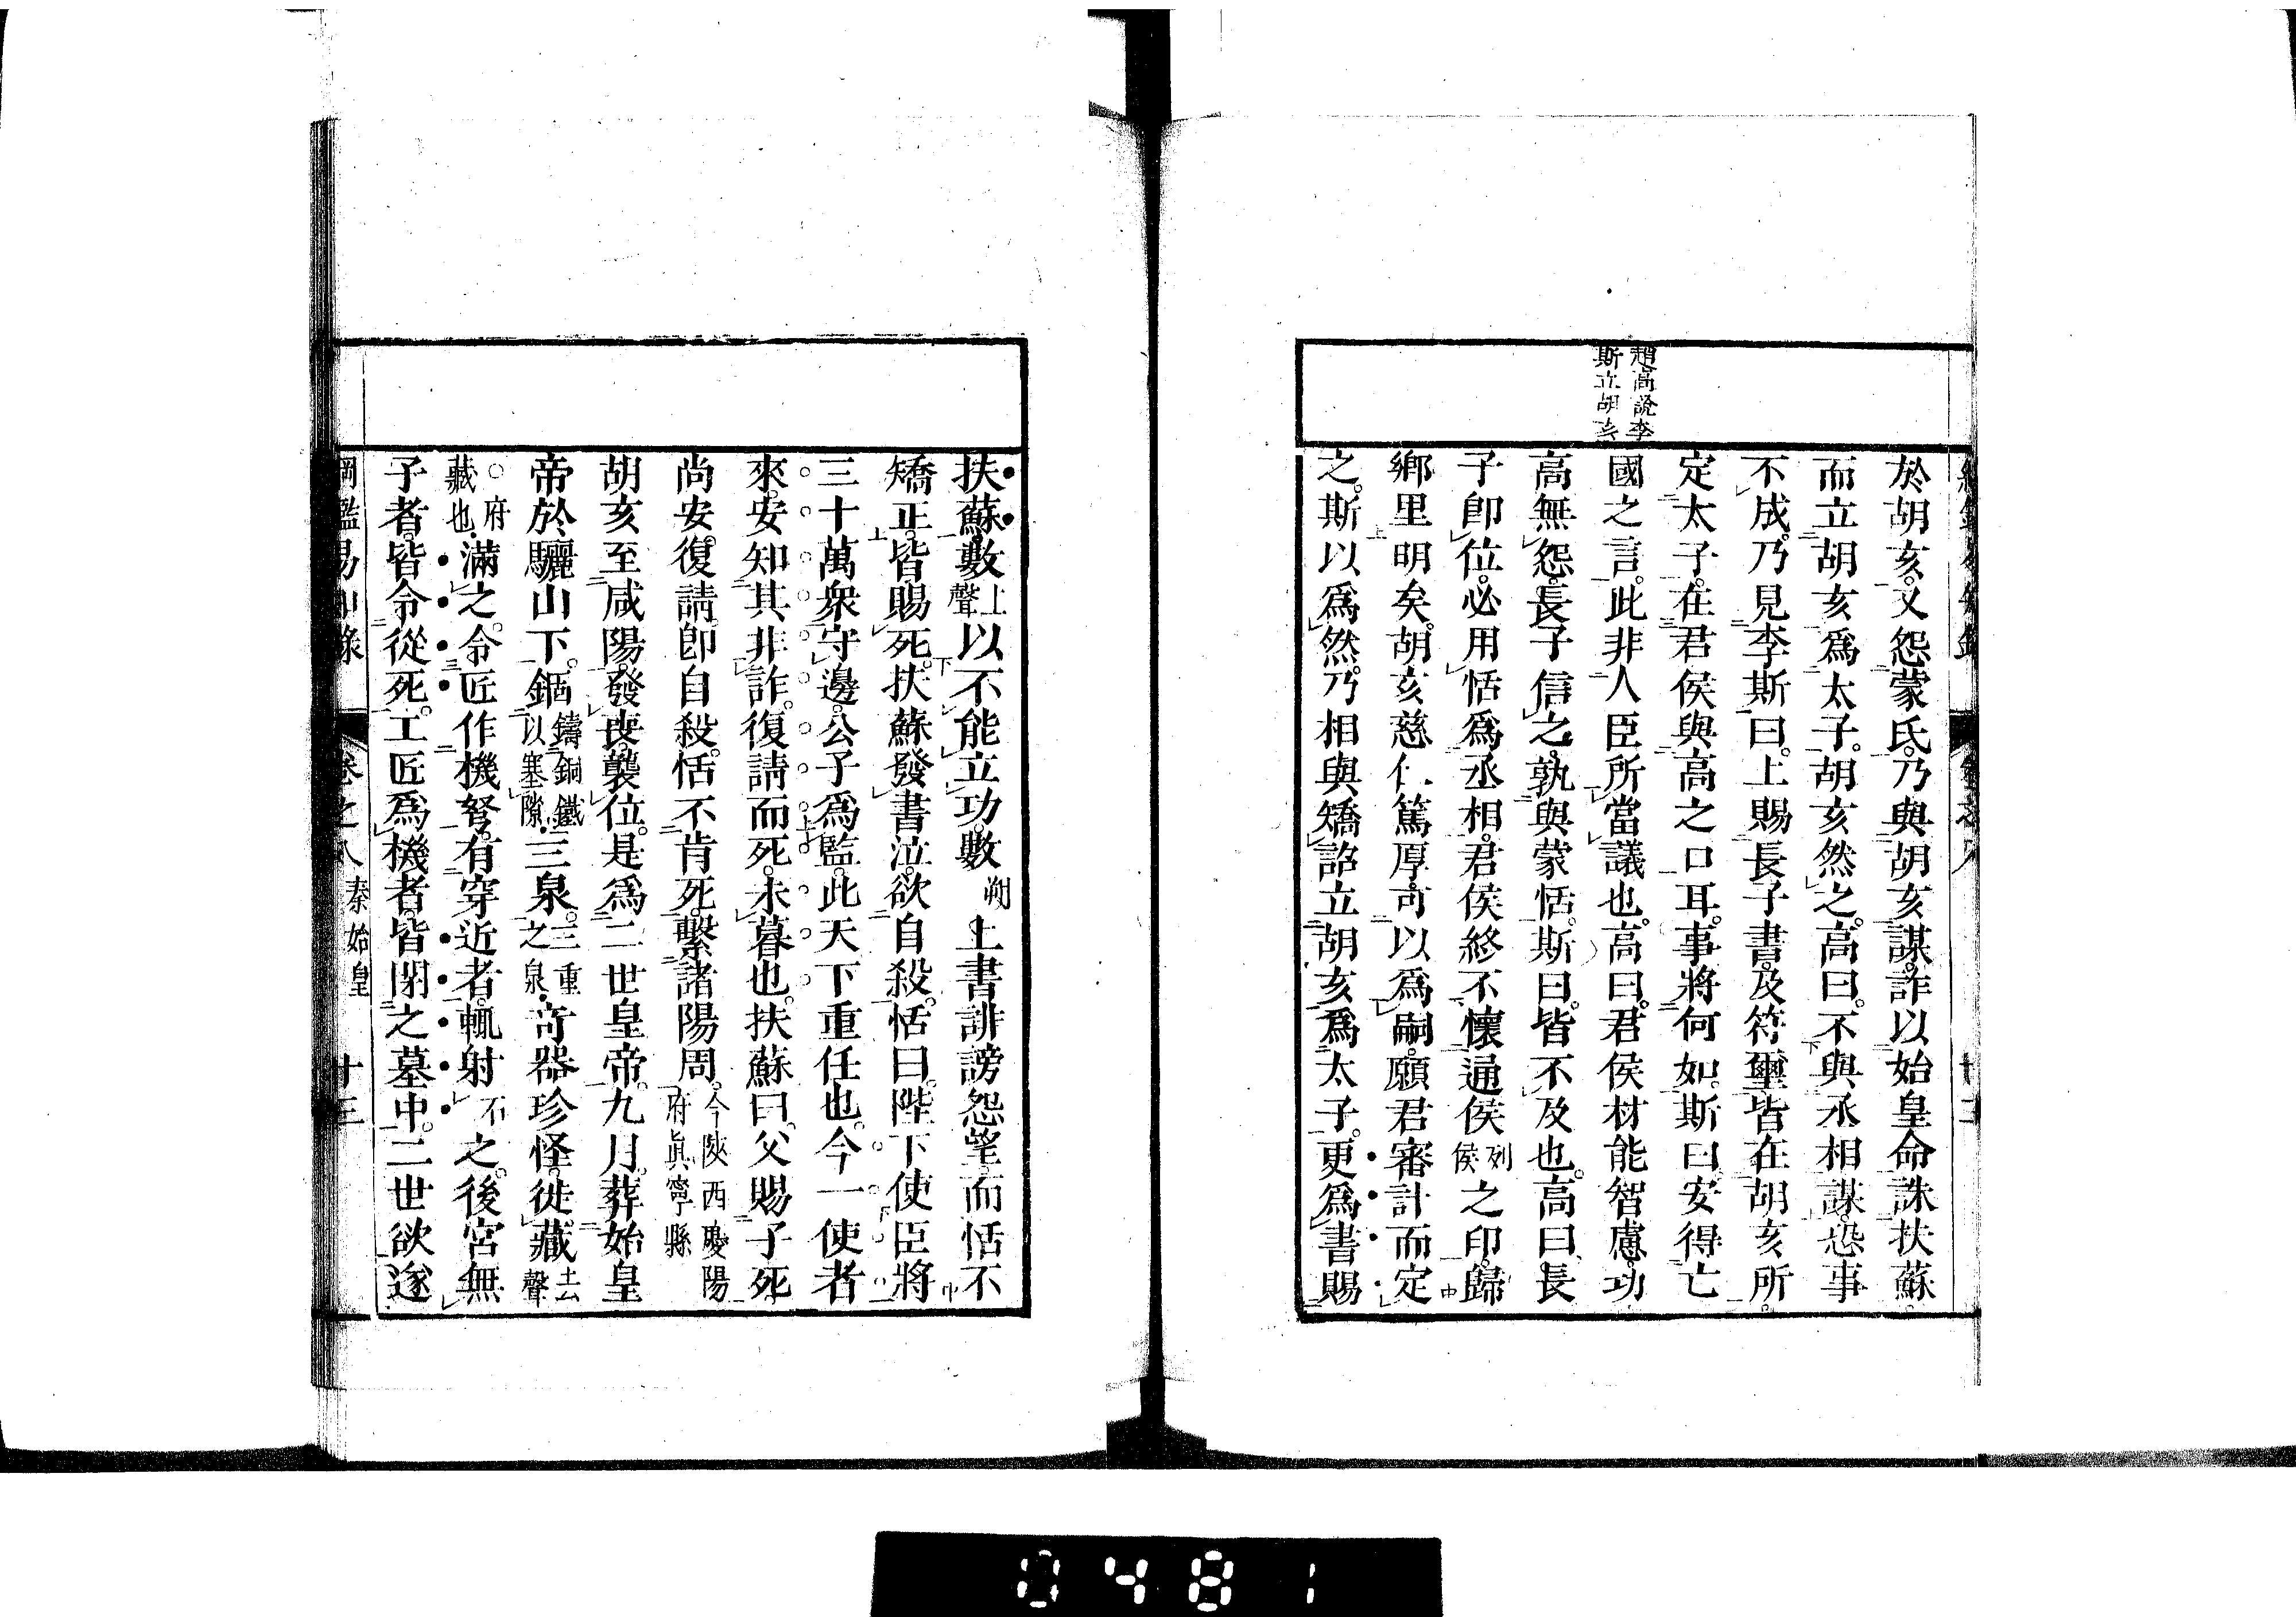 趙高說李
斯立胡亥
於胡亥。又怨蒙氏。乃與胡亥謀。詐以始皇命誅扶蘇。
而立胡亥爲太子。胡亥然之。高曰。不與丞相謀。恐事
不成。乃見李斯曰。上賜長子書。及符璽。皆在胡亥所。
定太子。在君侯與高之口耳。事將何如。斯曰。安得亡
國之言。此非人臣所當議也。高曰。君侯材能智慮。功
高無怨。長子信之。孰與蒙恬。斯曰。皆不及也。高曰、長
子卽位。必用恬爲丞相。君侯終不懷通侯列侯之印。歸
鄉里明矣。胡亥慈仁篤厚。可以爲嗣。願君審計而定
之。斯以爲然。乃相與矯詔立胡亥爲太子。更爲書賜
扶蘇。數上聲以不能立功。數朔上書誹謗怨望。而恬不
矯正。皆賜死。扶蘇發書泣。欲自殺。恬曰。陛下使臣將
三十萬衆守邊。公子爲監。此天下重任也。今一使者
來。安知其非詐。復請而死。未暮也。扶蘇曰。父賜子死
尚安。復請。卽自殺。恬不肯死。繫諸陽周。今陝西慶陽府眞寧縣
胡亥至咸陽。發喪。襲位。是爲二世皇帝。九月。葬始皇
帝於驪山下。錮鑄銅鐵以塞隙三泉。三重之泉奇器珍怪。徙藏去聲
○府藏也滿之。令匠作機弩。有穿近者。輒射石之。後宮無
子者。皆令從死。工匠爲機者。皆閉之墓中。二世欲遂
綱鑑易知錄 卷之八 秦始皇 十三
0481